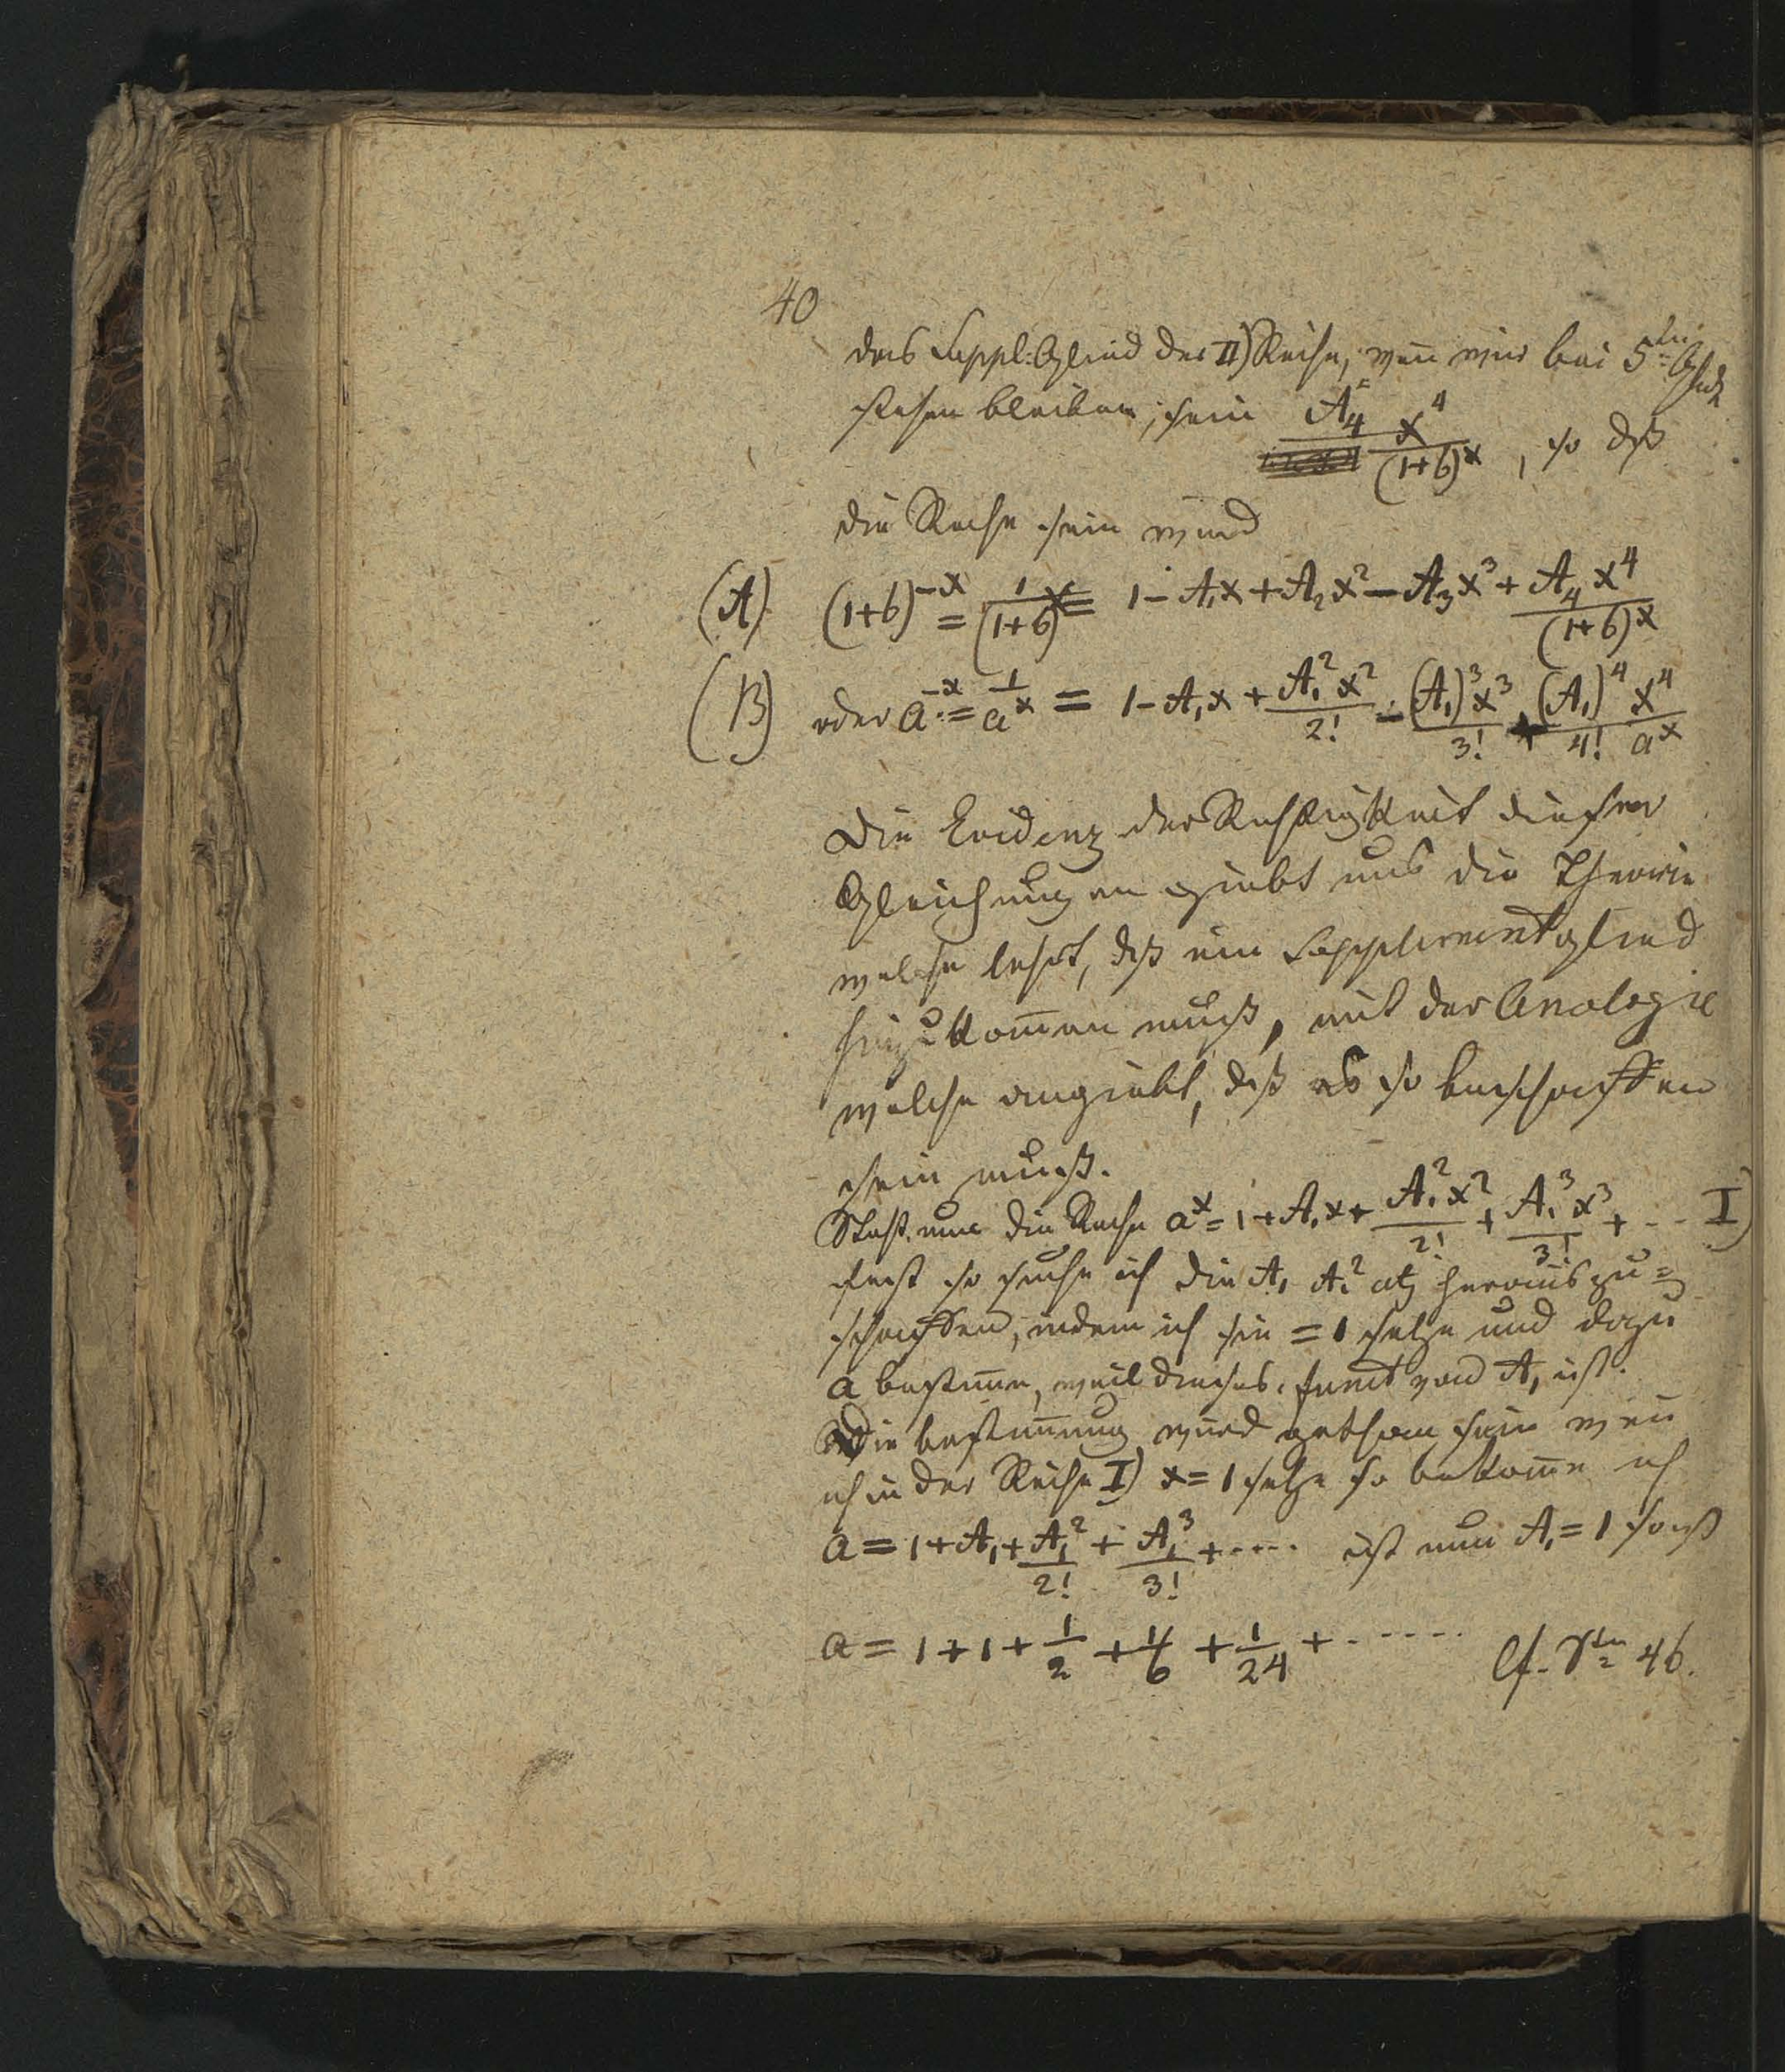 40
das Suppl: Glied der II) Reihe, weñ wir bei 5ten Glied
stehen bleiben, sein A₄ x⁴ / (1+b)ˣ , so daß
die Reihe sein wird
(A) (1+b)⁻ˣ = 1/(1+b)ˣ = 1 - A₁x + A₂x² - A₃x³ + A₄x⁴/(1+b)ˣ
(B) oder a⁻ˣ = 1/aˣ = 1 - A₁x + A₁²x²/2! - (A₁)³x³/3! + (A₁)⁴x⁴/4! aˣ
Die Evidenz der Richtigkeit dieser
Gleichungen giebt uns die Theorie
welche lehrt, daß ein Supplementglied
hinzukom̄en muß, mit der Analogie
welche angiebt, daß es so beschaffen
sein muß.
Steht nun die Reihe aˣ = 1 + A₁x + A₁²x²/2! + A₁³x³/3! + ... I)
fest so suche ich die A₁ A₁² etz herauszu=
schaffen, indem ich sie = 1 setze und dazu
a bestim̄e, weil dieses funct von A₁ ist.
Die bestim̄ung wird gethan sein weñ
ich in der Reihe I) x = 1 setze so bekom̄e ich
a = 1 + A₁ + A₁²/2! + A₁³/3! + .... ist nun A₁ = 1 so ist
a = 1 + 1 + 1/2 + 1/6 + 1/24 + ...... Cf. 46.